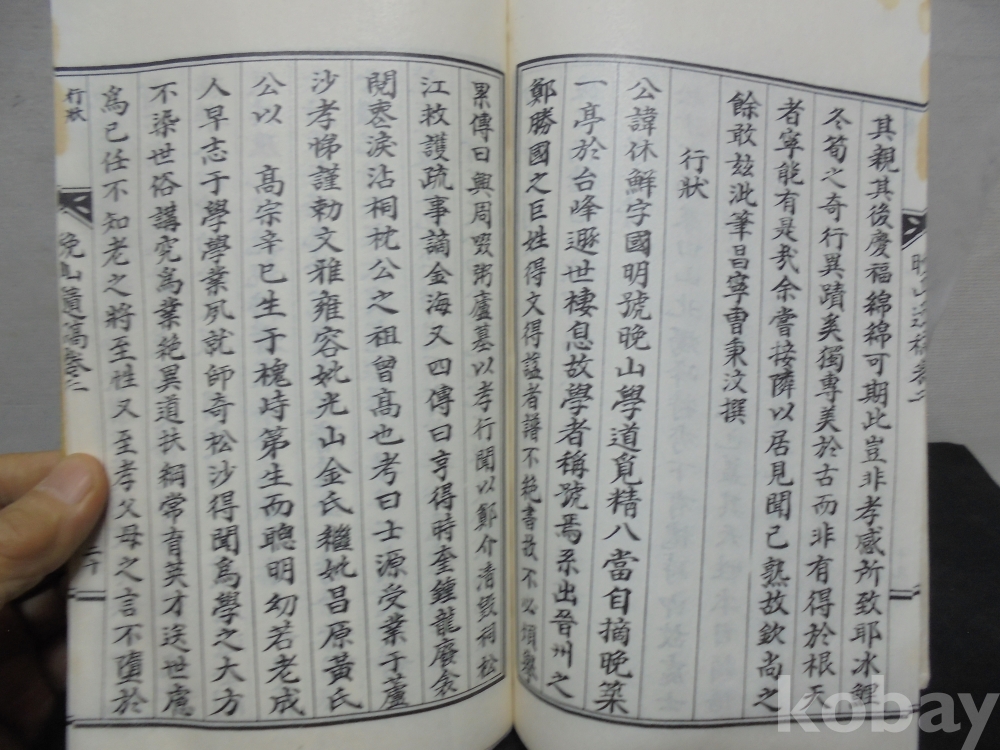 其親其後慶福綿綿可期此豈非孝感所致耶氷鯉
冬筍之奇行異蹟奚獨專美於古而非有得於根天
者寧能有是哉余嘗接隣以居見聞已熟故欽尚之
餘敢玆泚筆昌寧曺秉汶撰
行狀
公諱休鮮字國明號晩山學道覓精八當自摘晩築
一亭於台峰遯世棲息故學者稱號焉系出晋州之
鄭勝國之巨姓得文得諡者譜不絶書故不必煩
累傳曰興周啜粥廬墓以孝行聞以鄭介淸毁祠松
江救護疏事謫金海又四傳曰亨得時奎鍾龍廢
閱褱淚沾桐枕公之祖曾高也考曰士源受業于蘆
沙孝悌謹勅文雅雍容妣光山金氏繼妣昌原黃氏
公以 高宗辛巳生于槐峙第生而聰明幼若老成
人早志于學學業夙就師奇松沙得聞爲學之大方
不染世俗講究爲業絶異道扶綱常育英才送世慮
爲已任不知老之將至性又至孝父母之言不墮於
行狀
晩山遺稿卷二
晩山遺稿卷二
kobay